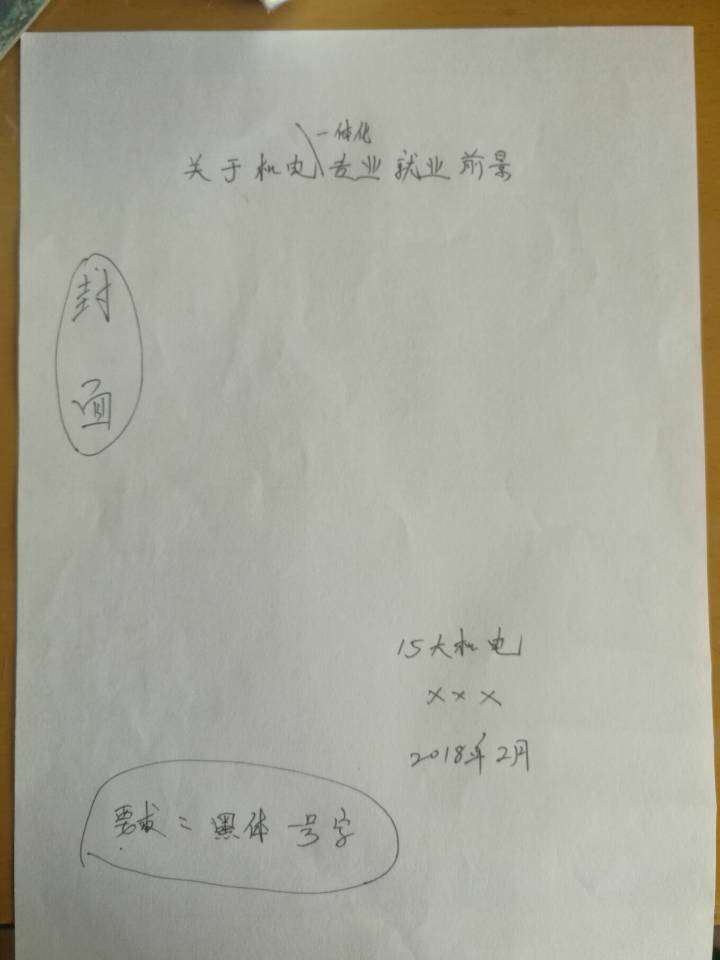 关于机电一体化专业就业前景
封
面
15大机电
×××
2018年2月
要求：黑体 号字